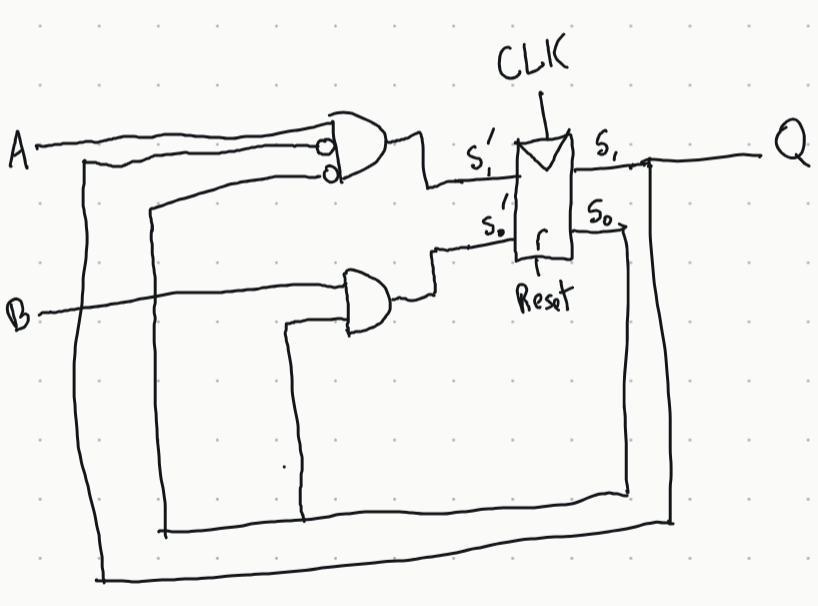 CLK
A
S₁'
S₁
Q
S₀'
S₀
r
B
Reset